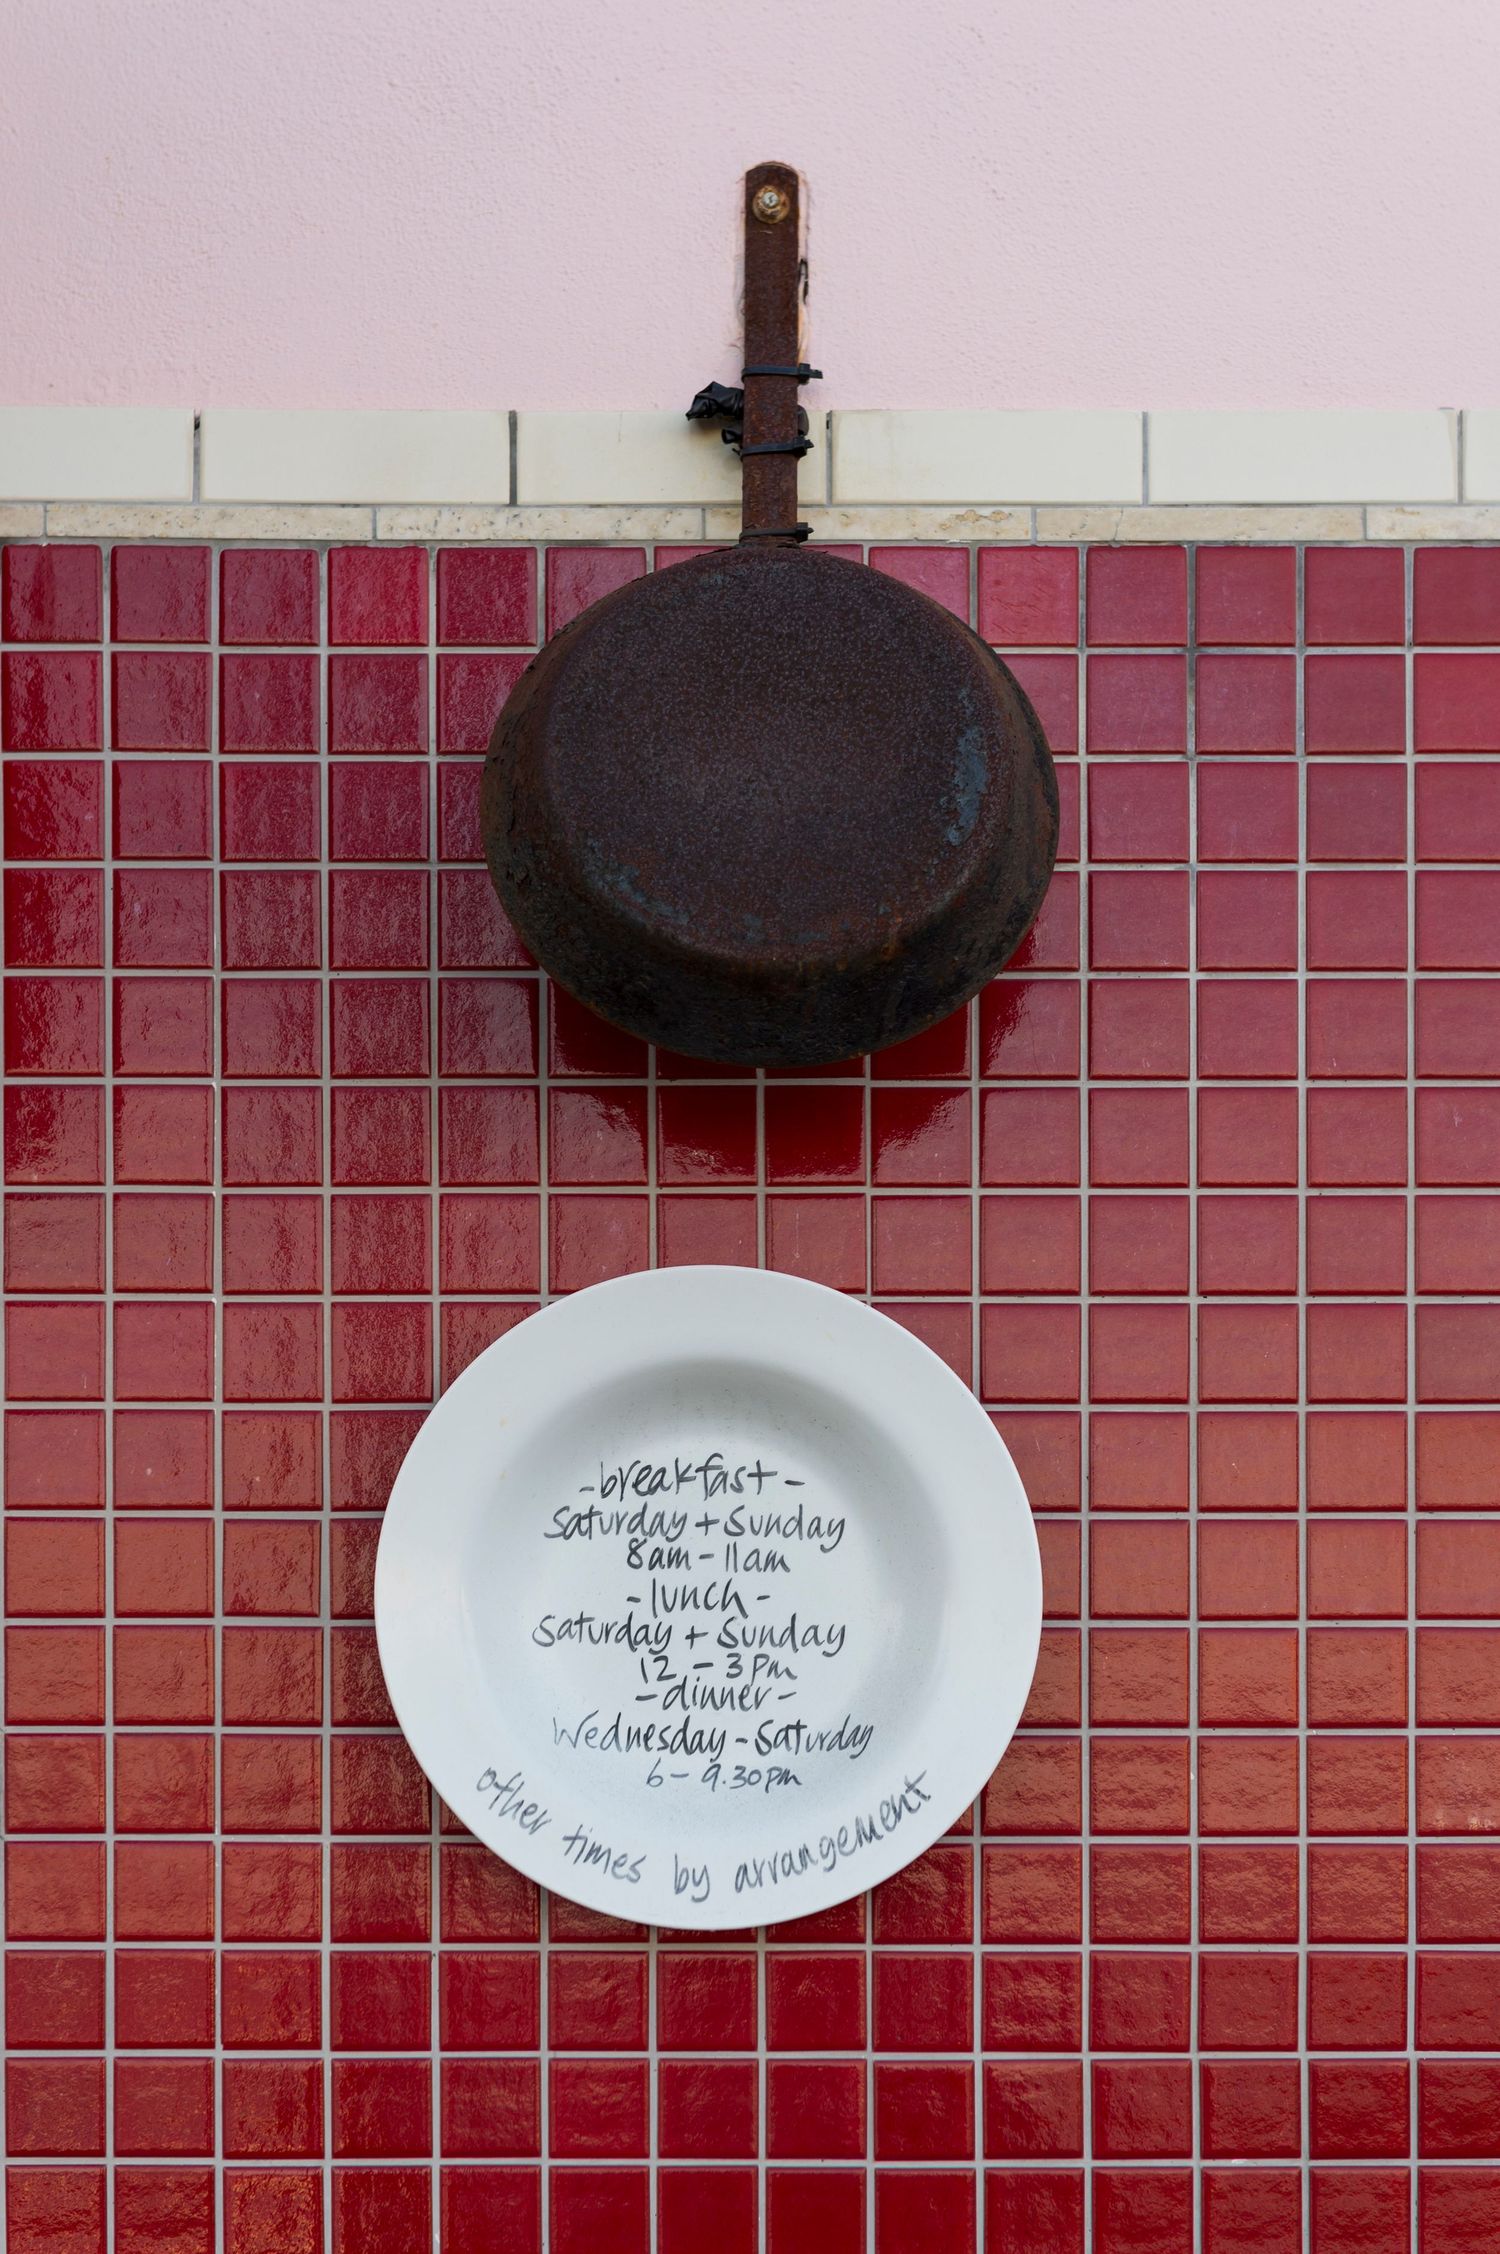 -breakfast-
Saturday + Sunday
8am - 11am
-lunch-
Saturday + Sunday
12 - 3pm
-dinner-
Wednesday - Saturday
6 - 9.30pm
other times by arrangement